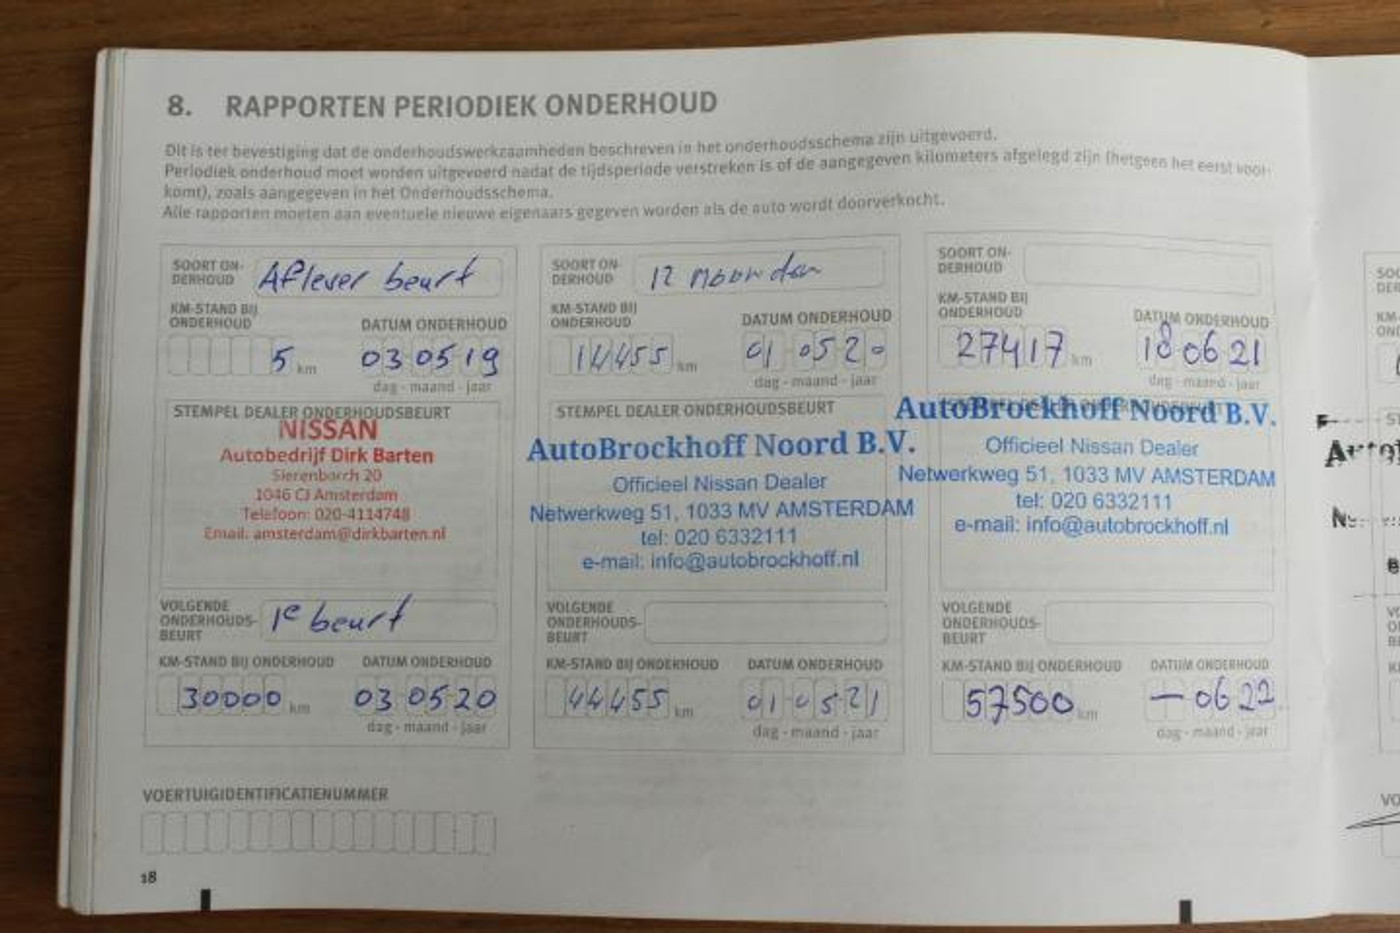 8. RAPPORTEN PERIODIEK ONDERHOUD
Dit is ter bevestiging dat de onderhoudswerkzaamheden beschreven in het onderhoudsschema zijn uitgevoerd.
Periodiek onderhoud moet worden uitgevoerd nadat de tijdsperiode verstreken is of de aangegeven kilometers afgelegd zijn (hetgeen het eerst voor-
komt), zoals aangegeven in het Onderhoudsschema.
Alle rapporten moeten aan eventuele nieuwe eigenaars gegeven worden als de auto wordt doorverkocht.
SOORT ON-
DERHOUD
Aflever beurt
KM-STAND BIJ
ONDERHOUD
5 km
DATUM ONDERHOUD
03 05 19
dag - maand - jaar
STEMPEL DEALER ONDERHOUDSBEURT
NISSAN
Autobedrijf Dirk Barten
Sierenborch 20
1046 CJ Amsterdam
Telefoon: 020-4114748
Email: amsterdam@dirkbarten.nl
VOLGENDE
ONDERHOUDS-
BEURT
1e beurt
KM-STAND BIJ ONDERHOUD
30000 km
DATUM ONDERHOUD
03 05 20
dag - maand - jaar
SOORT ON-
DERHOUD
12 maanden
KM-STAND BIJ
ONDERHOUD
14455 km
DATUM ONDERHOUD
01 05 20
dag - maand - jaar
STEMPEL DEALER ONDERHOUDSBEURT
AutoBrockhoff Noord B.V.
Officieel Nissan Dealer
Netwerkweg 51, 1033 MV AMSTERDAM
tel: 020 6332111
e-mail: info@autobrockhoff.nl
VOLGENDE
ONDERHOUDS-
BEURT
KM-STAND BIJ ONDERHOUD
44455 km
DATUM ONDERHOUD
01 05 21
dag - maand - jaar
SOORT ON-
DERHOUD
KM-STAND BIJ
ONDERHOUD
27417 km
DATUM ONDERHOUD
18 06 21
dag - maand - jaar
AutoBrockhoff Noord B.V.
Officieel Nissan Dealer
Netwerkweg 51, 1033 MV AMSTERDAM
tel: 020 6332111
e-mail: info@autobrockhoff.nl
VOLGENDE
ONDERHOUDS-
BEURT
KM-STAND BIJ ONDERHOUD
57500 km
DATUM ONDERHOUD
— 06 22
dag - maand - jaar
VOERTUIGIDENTIFICATIENUMMER
18